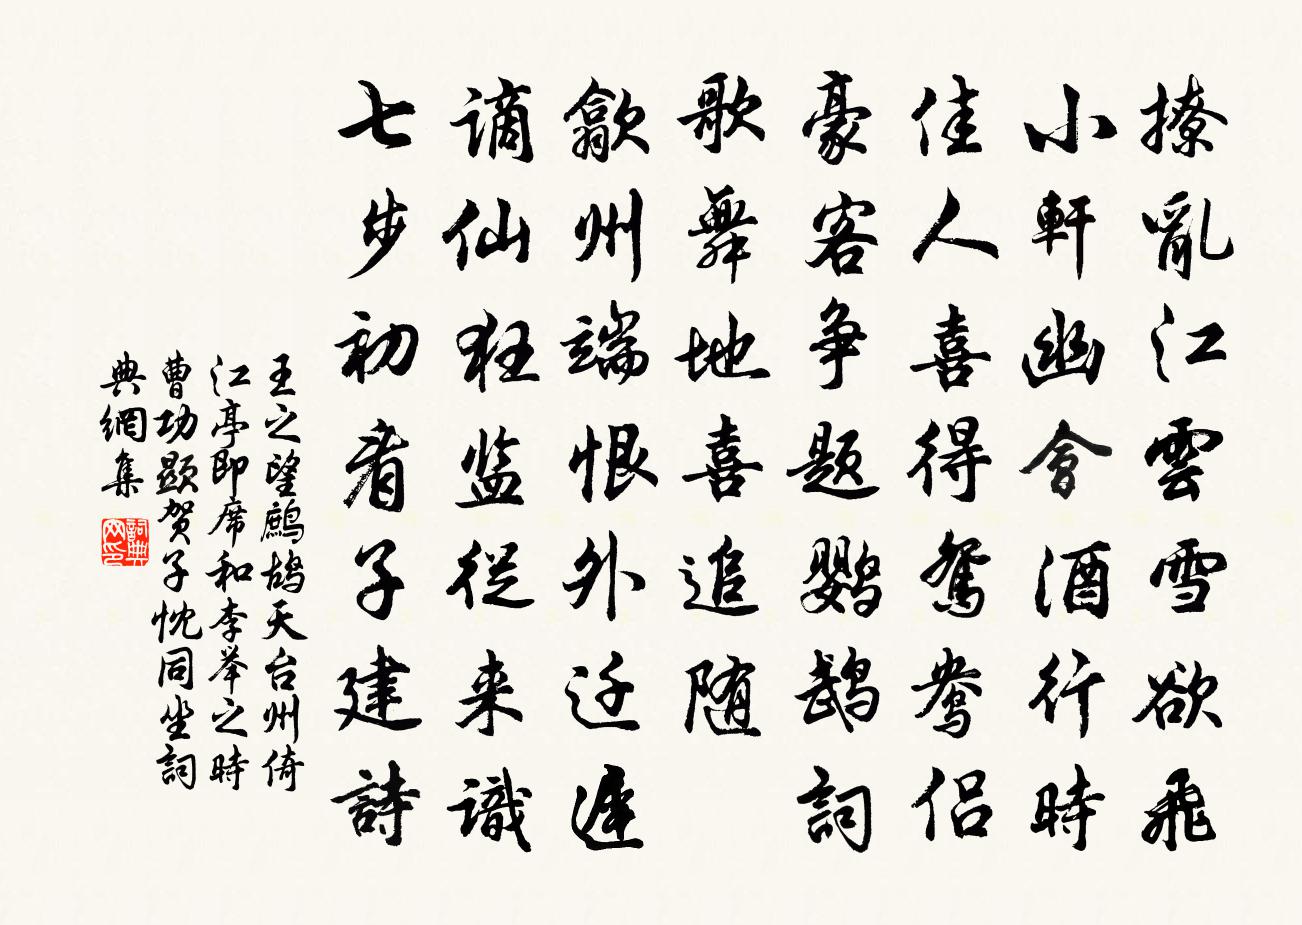 撩亂江雲雪欲飛
小軒幽會酒行時
佳人喜得鴛鴦侶
豪客争题鹦鹉詞
歌舞地喜追随
歙州端恨外迁遲
谪仙狂监從来識
七步初看子建詩
王之望鷓鸪天台州倚
江亭即席和李举之時
曹功顕贺子忱同坐詞
典網集
詞典网印